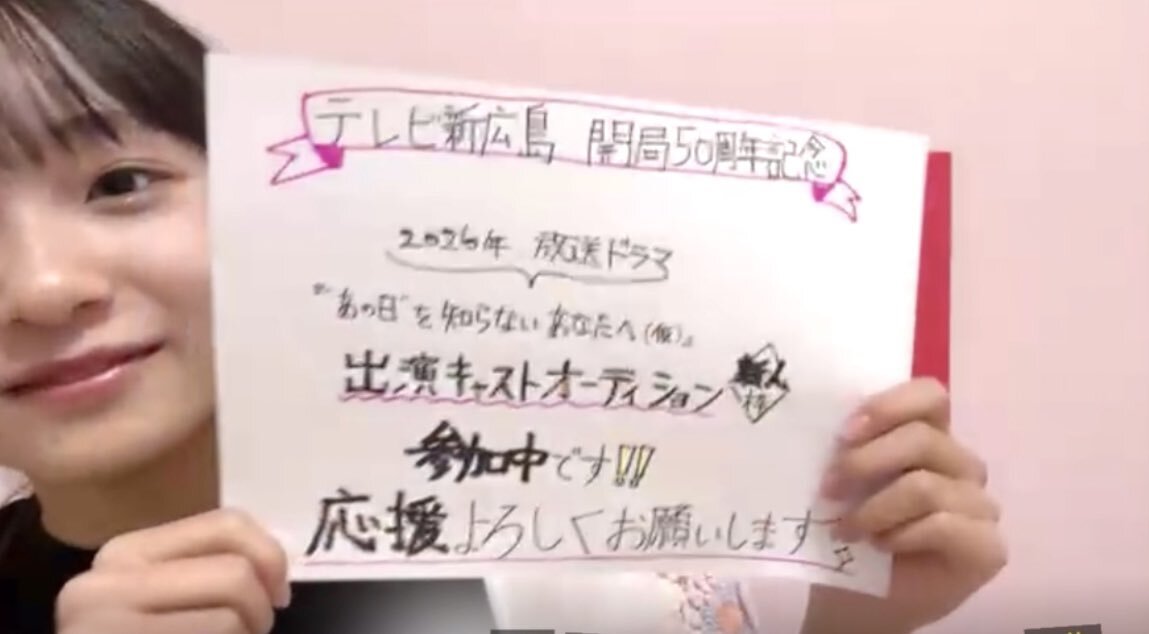 テレビ新広島 開局50周年記念
2026年 放送ドラマ
『"あの日"を知らないあなたへ(仮)』
出演キャストオーディション 新人枠
参加中です!!
応援よろしくお願いします